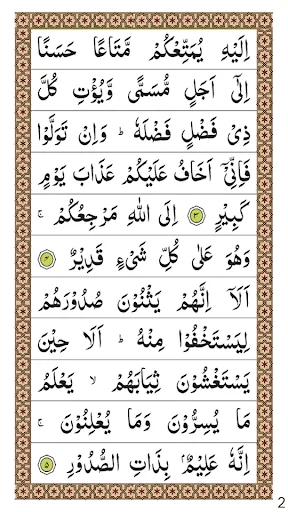 اِلَيْهِ يُمَتِّعْكُمْ مَّتَاعًا حَسَنًا
اِلٰٓى اَجَلٍ مُّسَمًّى وَّيُؤْتِ كُلَّ
ذِىْ فَضْلٍ فَضْلَهٗ ؕ وَاِنْ تَوَلَّوْا
فَاِنِّىْۤ اَخَافُ عَلَيْكُمْ عَذَابَ يَوْمٍ
كَبِيْرٍ ۳ اِلَى اللّٰهِ مَرْجِعُكُمْ ۚ
وَهُوَ عَلٰى كُلِّ شَىْءٍ قَدِيْرٌ ۴
اَلَاۤ اِنَّهُمْ يَثْنُوْنَ صُدُوْرَهُمْ
لِيَسْتَخْفُوْا مِنْهُ ؕ اَلَا حِيْنَ
يَسْتَغْشُوْنَ ثِيَابَهُمْ ۙ يَعْلَمُ
مَا يُسِرُّوْنَ وَمَا يُعْلِنُوْنَ ۚ
اِنَّهٗ عَلِيْمٌۢ بِذَاتِ الصُّدُوْرِ ۵
2